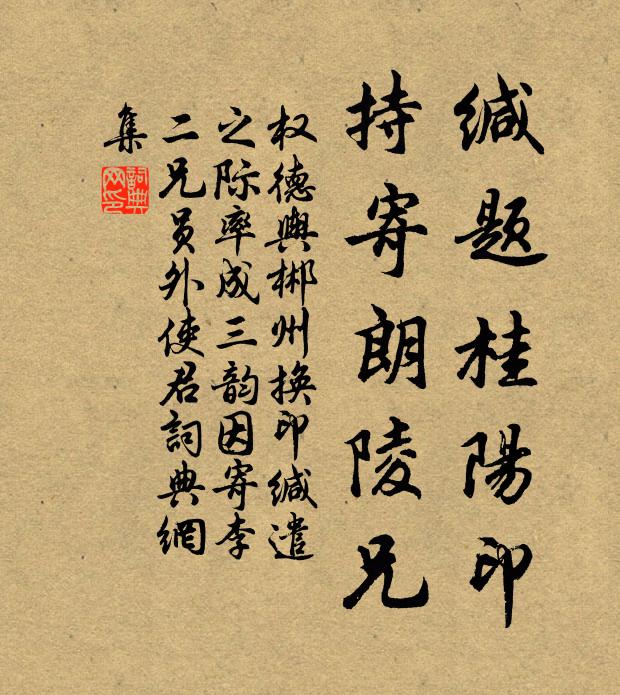 缄题桂陽印
持寄朗陵兄
权德舆郴州换印缄遣
之际率成三韵因寄李
二兄员外使君詞典網
集
詞典
网印